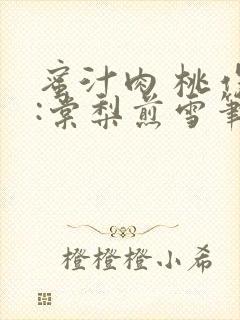 蜜汁肉桃
:棠梨煎雪筆
橙橙橙小希